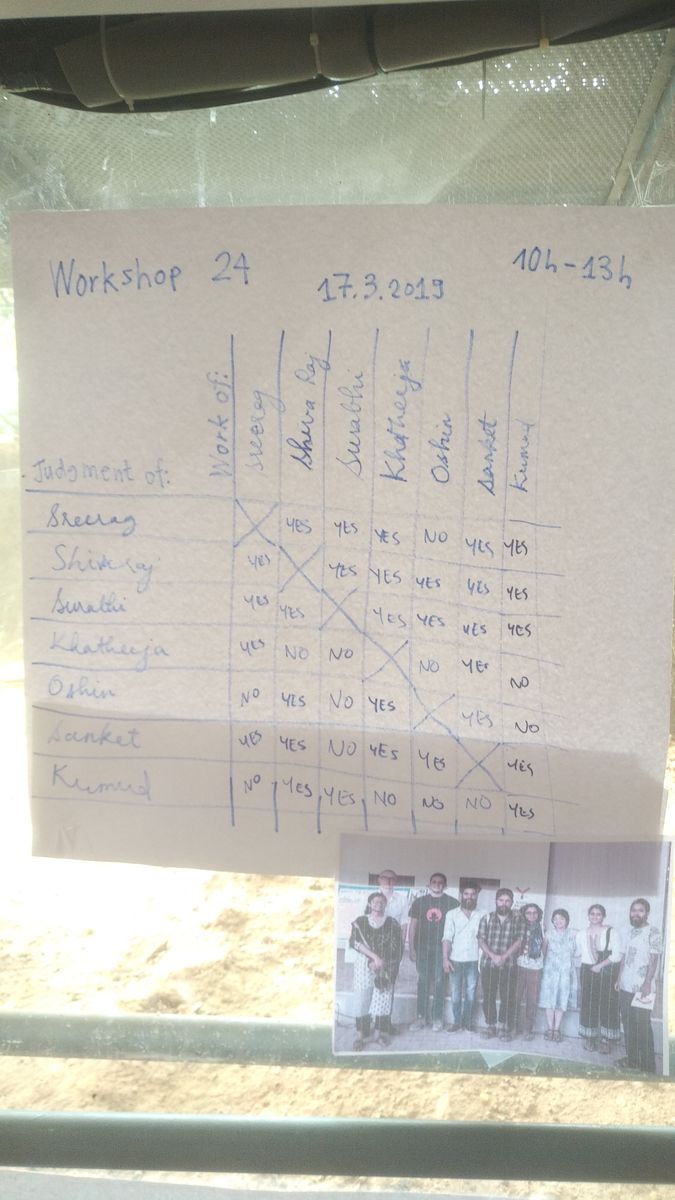 Workshop 24
17.3.2019
10h-13h
Judgment of:
Work of: Sreerag Shiva Raj Surabhi Khatheeja Oshin Sanket Kumud
Sreerag YES YES YES NO YES YES
Shivaraj YES YES YES YES YES YES
Surabhi YES YES YES YES YES YES
Khatheeja YES NO NO NO YES NO
Oshin NO YES NO YES YES NO
Sanket YES YES NO YES YES YES
Kumud NO YES YES NO NO NO YES